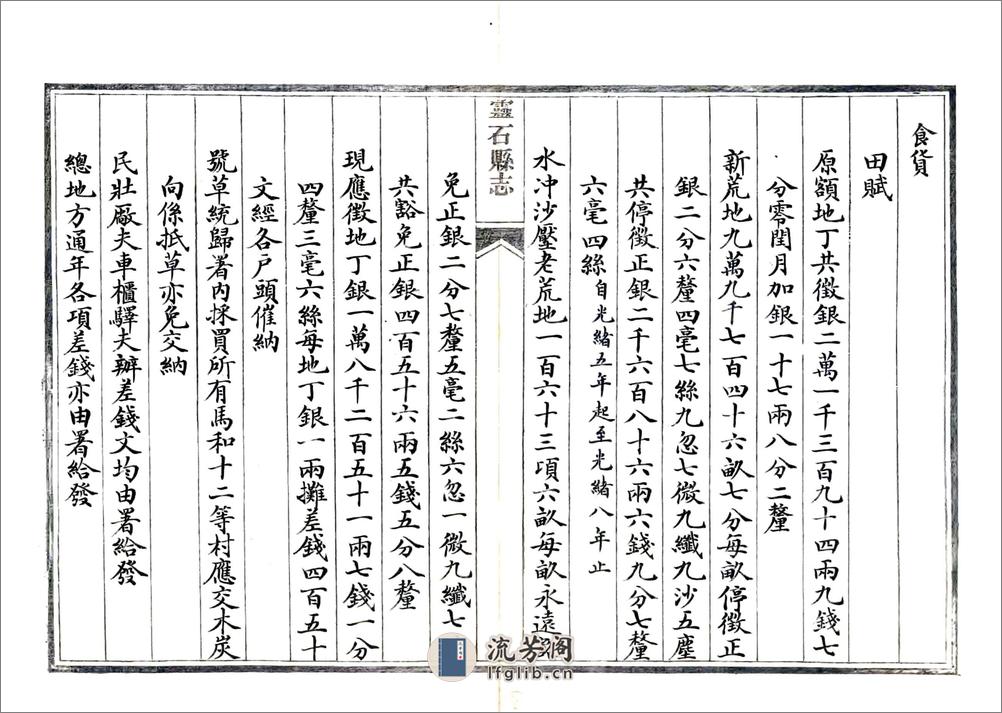 食貨
田賦
原額地丁共徵銀二萬一千三百九十四兩九錢七
分零閏月加銀一十七兩八分二釐
新荒地九萬九千七百四十六畝七分每畝停徵正
銀二分六釐四毫七絲九忽七微九纖九沙五塵
共停徵正銀二千六百八十六兩六錢九分七釐
六毫四絲自光緒五年起至光緒八年止
水沖沙壓老荒地一百六十三項六畝每畝永遠
靈石縣志
免正銀二分七釐五毫二絲六忽一微九纖七
共豁免正銀四百五十六兩五錢五分八釐
現應徵地丁銀一萬八千二百五十一兩七錢一分
四釐三毫六絲每地丁銀一兩攤差錢四百五十
文經各戶頭催納
號草統歸署內採買所有馬和十二等村應交木炭
向係抵草亦免交納
民壯廠夫車櫃驛夫辦差錢文均由署給發
總地方通年各項差錢亦由署給發
流芳閣
lfglib.cn